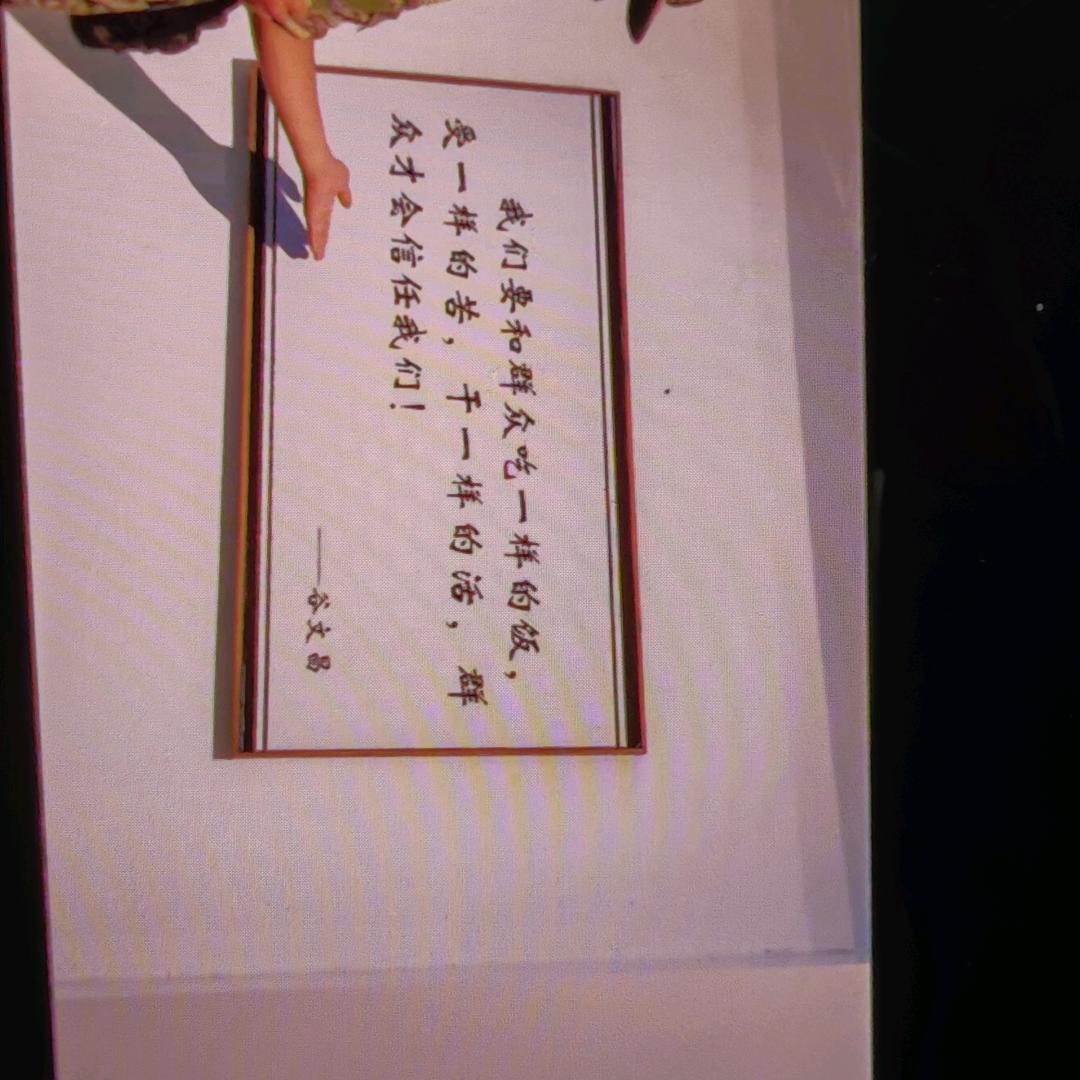 我们要和群众吃一样的饭，
受一样的苦，干一样的活，群
众才会信任我们！
——谷文昌